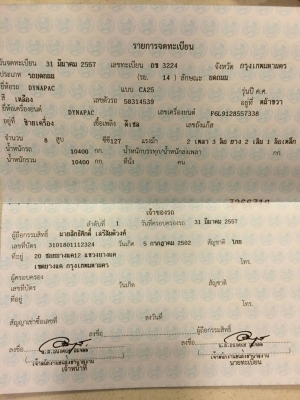 รายการจดทะเบียน
วันจดทะเบียน 31 มีนาคม 2557 เลขทะเบียน 3224 จังหวัด กรุงเทพมหานคร
ประเภท รถบดถนน (รย. 14 ) ลักษณะ บดถนน
ยี่ห้อรถ DYNAPAC แบบ CA25 รุ่นปี ค.ศ.
สี เหลือง เลขตัวรถ 58314539 อยู่ที่
ยี่ห้อเครื่องยนต์ DYNAPAC เลขเครื่องยนต์
อยู่ที่ ซ้ายเครื่อง เชื้อเพลิง ดีเซล เลขถังแก๊ส
จำนวน สูบ ซีซี แรงม้า 2 เพลา ล้อ ยาง 2 เส้น
น้ำหนักรถ 10400 กก. น้ำหนักบรรทุก/น้ำหนักลงเพลา กก.
น้ำหนักรวม 10400 กก. ที่นั่ง คน
เจ้าของรถ
ลำดับที่ 1 วันที่ครอบครองรถ 31 มีนาคม 2557
ผู้ถือกรรมสิทธิ์
เลขที่บัตร 3101801112324 วันเกิด 5 กรกฎาคม 2502 สัญชาติ ไทย
ที่อยู่ 20 ซอยบางแค12 แขวงบางแค
เขตบางแค กรุงเทพมหานคร โทร.
ผู้ครอบครอง
เลขที่บัตร วันเกิด สัญชาติ
ที่อยู่
โทร.
สัญญาเช่าซื้อเลขที่ ลงวันที่
ลงชื่อ ผู้ถือกรรมสิทธิ์
ลงชื่อ ลงชื่อ
เจ้าหน้าที่ นายทะเบียน